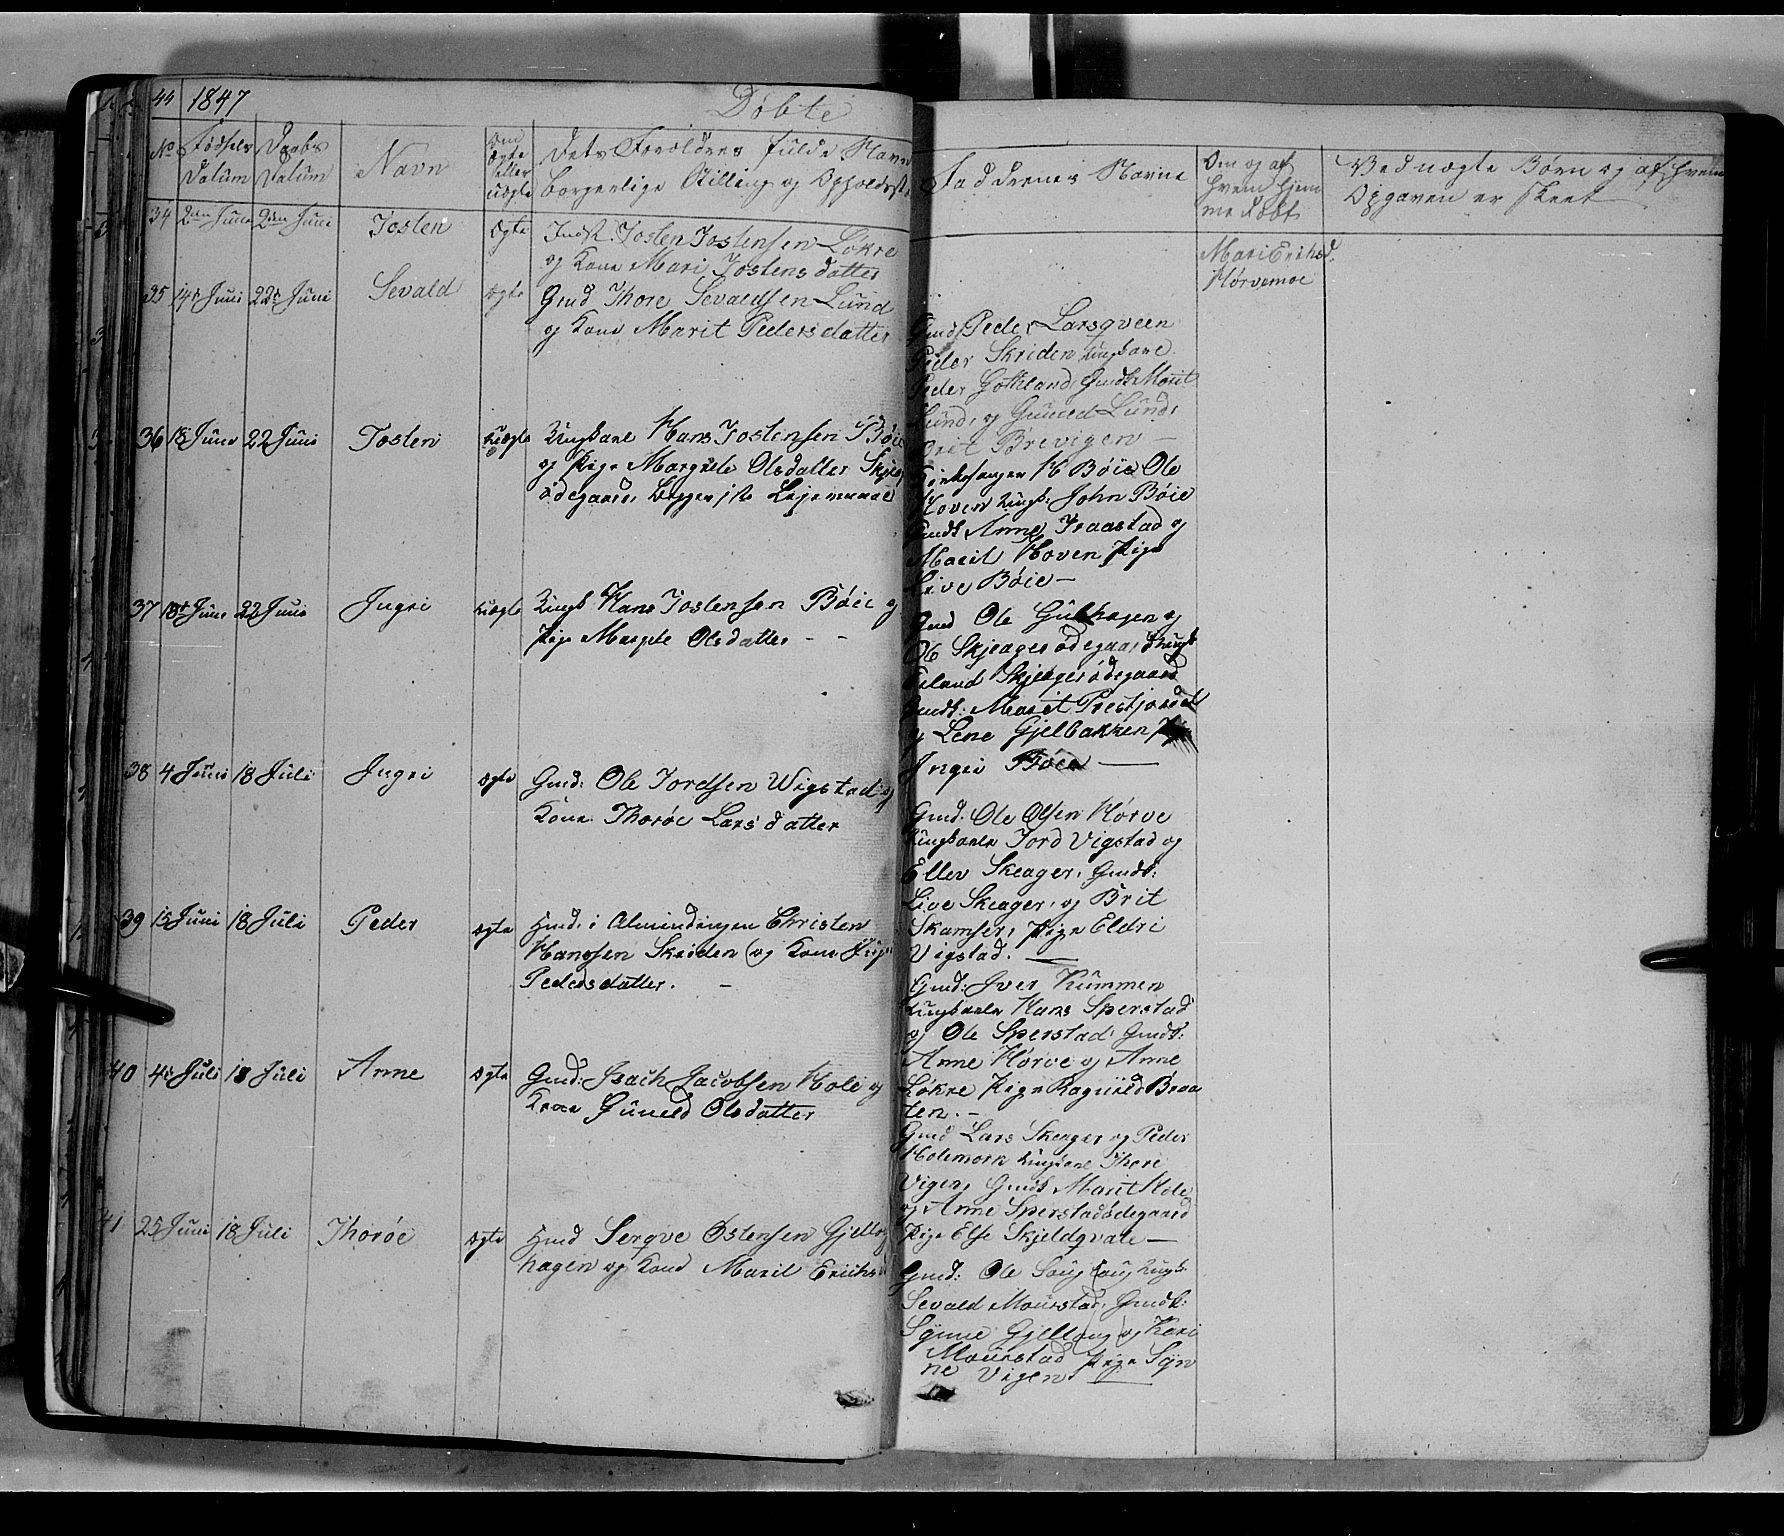 44 1847 Døbte
No Fødsels Datum Daabs Datum Navn Om Ægte eller uægte Dets Forældres fulde Navn
borgerlige Stilling og Opholdssted Faddernes Navne Om og af hvem hjemmedøbt Ved uægte Børn og af hvem Opgaven er skeet
34 2den Juni 2den Juni Josten ægte Indst. Josten Jostensen Løkre
og Kone Mari Jostensdatter
Mari Erichsd.
Hørvemoe
35 14de Juni 22de Juni Sevald ægte Gmd Thore Sevaldsen Lund
og Kone Marit Pedersdatter
Gmd Peder Larsqveen
Peder Skriden Ungkarl
Peder Gothland, Gmdk Marit
Lund, og Guneld Lund,
Brit Brevigen —
36 18 Juni 22 Juni Josten uægte Ungkarl Hans Jostensen Bøie
og Pige Margrete Olsdatter Skjeag
ødegaard, begges 1ste Leiermaal
Kirkesanger H Bøie Ole
Hoven Ungk: John Bøie
Gmdk Anne Traastad og
Marit Hoven Pige
Live Bøie —
37 18de Juni 22 Juni Ingri uægte Ungk Hans Jostensen Bøie og
Pige Margrete Olsdatter - -
Gmd Ole Gulhagen og
Ole Skjeagerødegaard Ungk
Erland Skjeagerødegaard
Gmdk: Marit Prestjordet
og Lene Gjelbakken Pige
Ingri Bøie —
38 4 Juni 18 Juli Ingri ægte Gmd: Ole Jordsen Wigstad og
Kone Thorøe Larsdatter
Gmd: Ole Olsen Hørve
Ungkarle Jord Vigstad og
Ellev Skeager, Gmdk:
Live Skeager, og Brit
Skamser, Pige Eldri
Vigstad. —
39 15 Juni 18 Juli Peder ægte Hmd: i Almindingen Christen
Hansen Skriden og Kone
Pedersdatter. -
Gmd: Iver Kummen
Ungkarle Hans Sperstad
og Ole Sperstad Gmdk:
Anne Hørve og Anne
Løkre Pige Ragnild Braa
ten. -
40 4de Juli 18 Juli Anne ægte Gmd: Isach Jacobsen Hole og
Kone Guneld Olsdatter
Gmd Lars Skeager og Peder
Holemork Ungkarl Thore
Vigen, Gmdk Marit Hole
og Anne Sperstadødegaard
Pige Else Skjeldqvale —
41 25 Juni 18 Juli Thorøe ægte Hmd Serqve Østensen Gjellog
hagen og Kone Marit Erichsd
Gmd: Ole Ungk:
Sevald Mourstad, Gmdk:
Synne Gjelloug og Kari
Mourstad Pige Syn
ne Vigen —